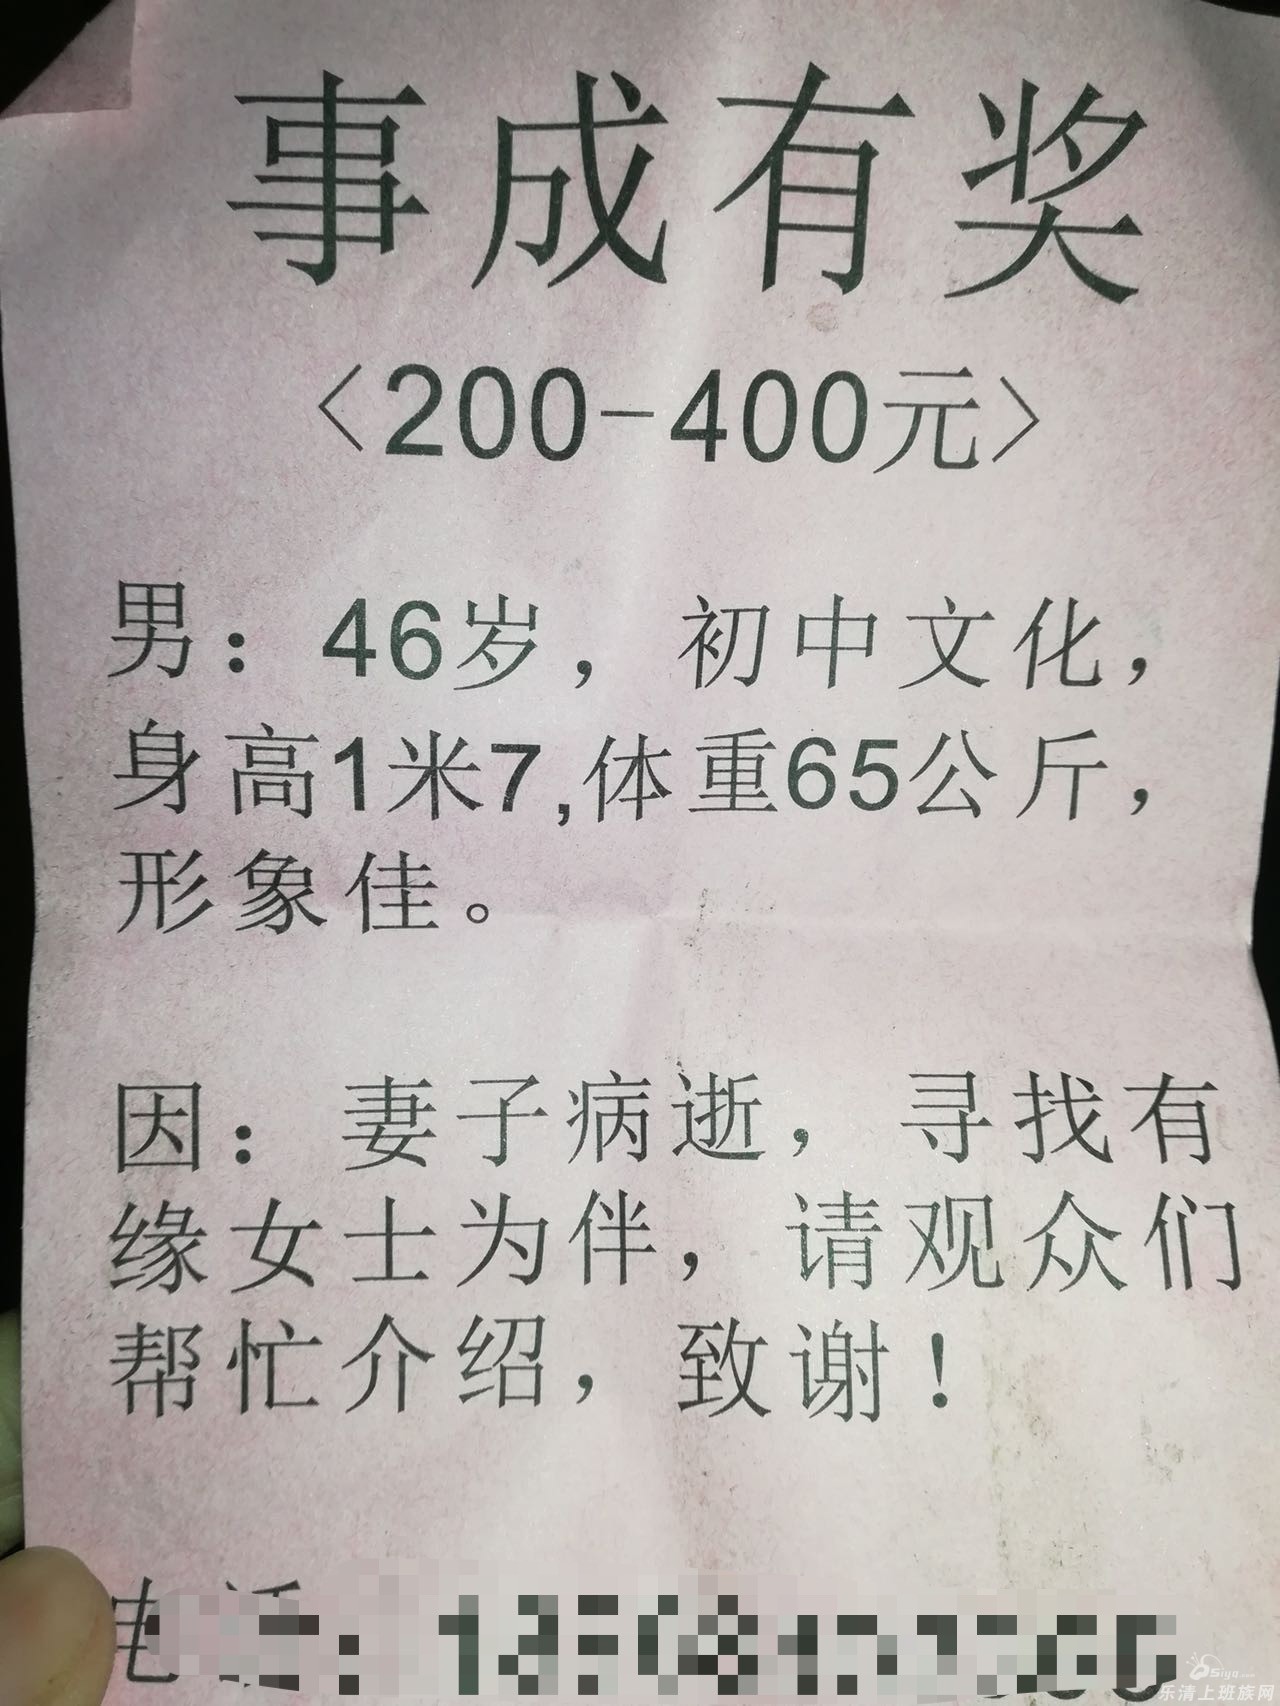 事成有奖
〈200-400元〉
男：46岁，初中文化，
身高1米7,体重65公斤，
形象佳。
因：妻子病逝，寻找有
缘女士为伴，请观众们
帮忙介绍，致谢！
电话：
乐清上班族网